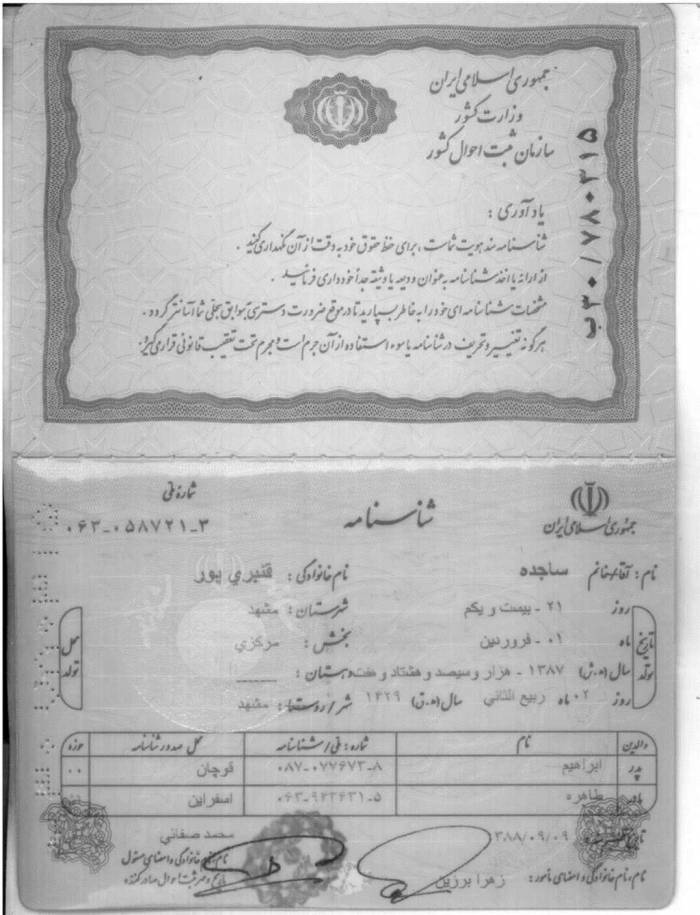 جمهوری اسلامی ایران
وزارت کشور
سازمان ثبت احوال کشور
ب۳۰/۷۸۰۳۱۵
یادآوری :
شناسنامه سند هویت شماست ، برای حفظ حقوق خود به دقت از آن نگهداری کنید .
از ارائه یا اخذ شناسنامه به عنوان ودیعه یا وثیقه جداً خودداری فرمائید .
مشخصات شناسنامه ای خود را به خاطر بسپارید تا در موقع ضرورت دسترسی بسوابق سجلی شما آسانتر گردد .
هرگونه تغییر و تحریف در شناسنامه یا سوء استفاده از آن جرم است و مجرم تحت تعقیب قانونی قرار می گیرد .
جمهوری اسلامی ایران
شناسنامه
شماره ملی
۰۶۳-۰۵۸۷۲۱-۳
نام : آقا/خانم ساجده نام خانوادگی : قنبری پور
تاریخ تولد
روز ۲۱ - بیست و یکم شهرستان : مشهد
ماه ۰۱ - فروردین بخش : مرکزی
سال (ه.ش) ۱۳۸۷ - هزار و سیصد و هشتاد و هفت دهستان :
روز ۰۲ ماه ربیع الثانی سال (ه.ق) ۱۴۲۹ شهر/روستا : مشهد
محل تولد
والدین نام شماره : ملی/شناسنامه محل صدور شناسنامه حوزه
پدر ابراهیم ۰۸۷-۰۷۷۶۷۳-۸ قوچان ۰۰
مادر طاهره ۰۶۳-۹۶۳۶۳۱-۵ اسفراین
تاریخ تنظیم سند ۱۳۸۸/۰۹/۰۹ محمد صفائی
نام، نام خانوادگی و امضای مسئول
نام، نام خانوادگی و امضای مأمور : زهرا برزین